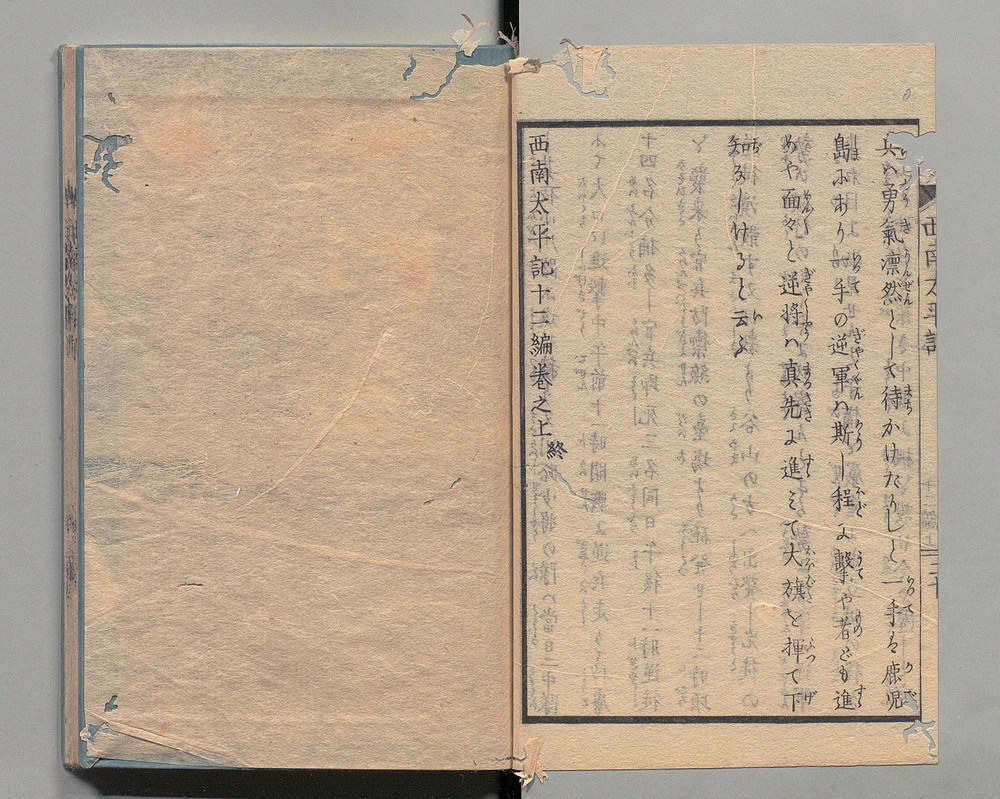 兵ハ勇氣凛然として待かけたりしと一手ハ鹿児
島にあり一手の逆軍ハ斯りし程に擊や者ども進
めや面々と逆將ハ真先に進ミて大旗を揮て下
知なしけると云ふ
西南太平記十二編巻之上終
西南太平記